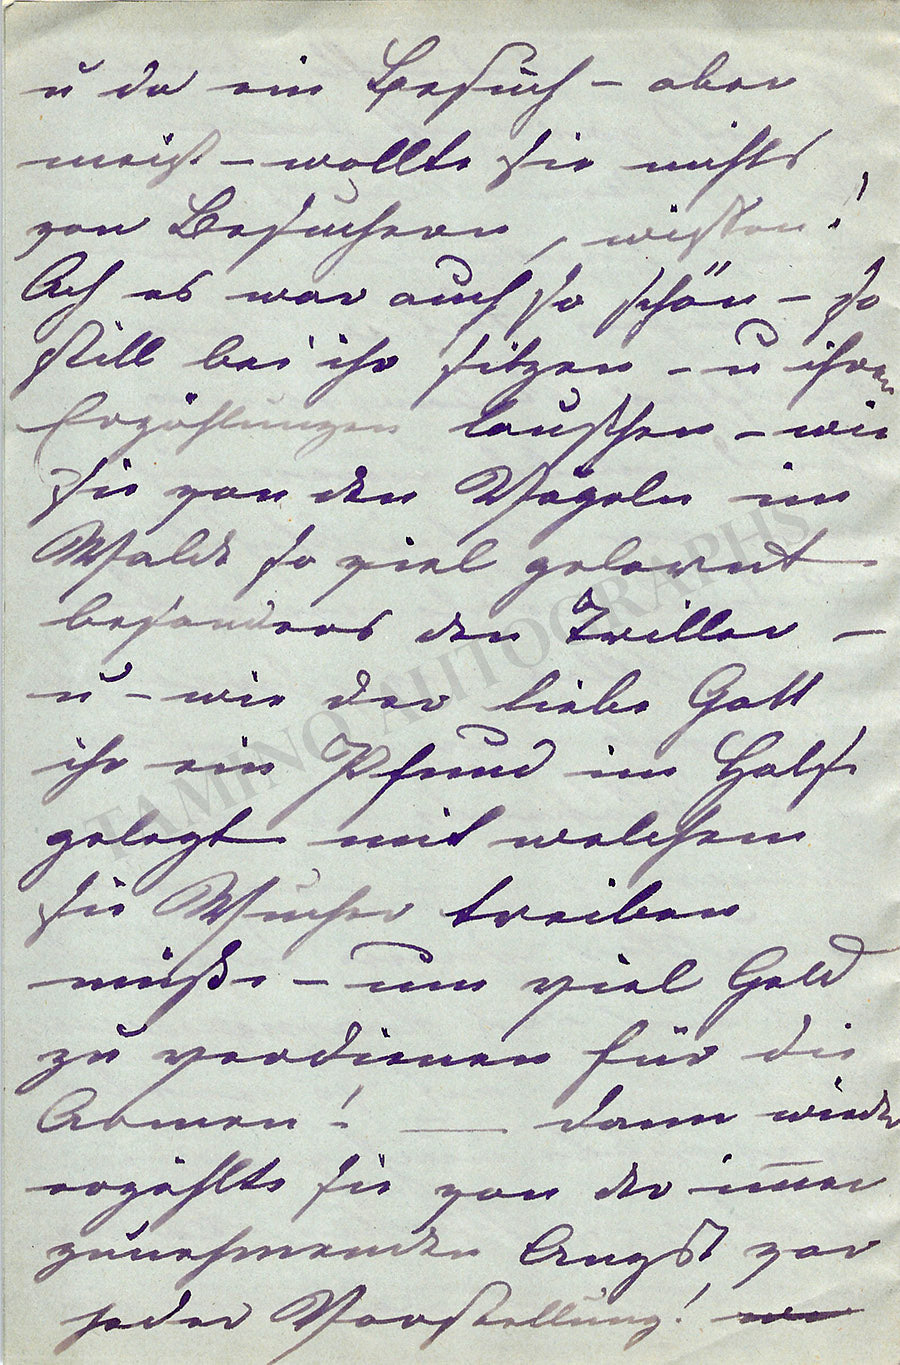 u da ein Besuch – aber
meist – wollte sie nichts
von Besuchern, wissen!
Ach es war auch so schön – so
still bei ihr sitzen – u ihren
Erzählungen lauschen – wie
sie von den Vögeln im
Walde so viel gelernt
besonders den Triller –
u – wie der liebe Gott
ihr ein Pfund im Hals
gelegt mit welchem
sie Wucher treiben
müßte – um viel Geld
zu verdienen für die
Armen! — dann wieder
erzählte sie von der immer
zunehmenden Angst vor
jeder Vorstellung!
TAMINO AUTOGRAPHS